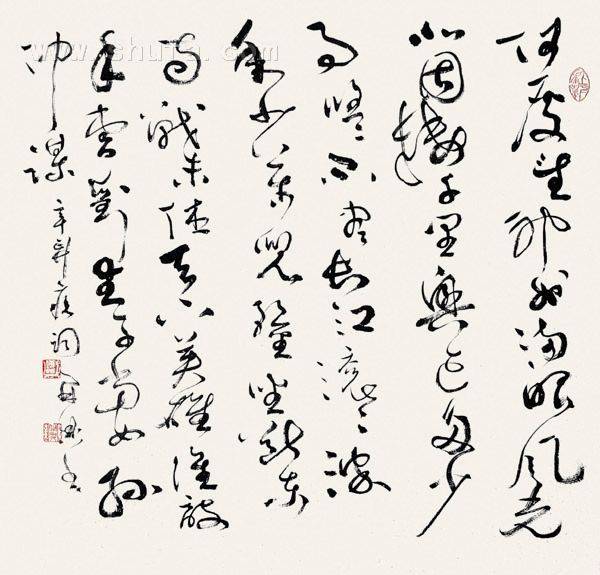 何處望神州滿眼風光
北固樓千里興亡多少
事悠悠不盡長江滾滾流
年少萬兜鍪坐斷東
南戰未休天下英雄誰敵
手曹劉生子當如孫
仲謀 辛棄疾詞
www.shufa.com